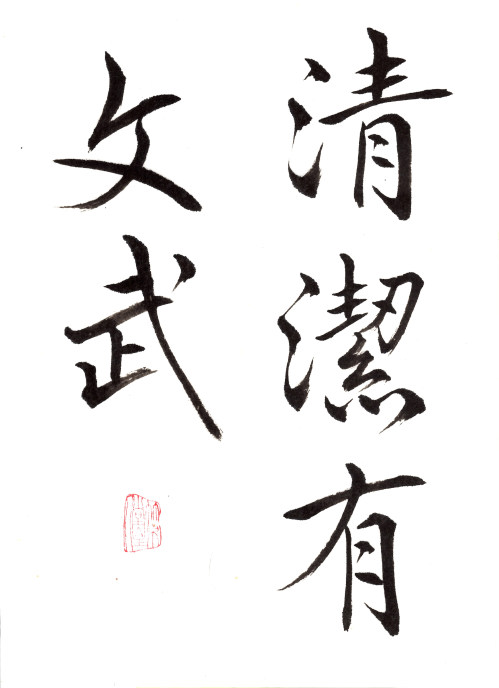 清潔有
文武